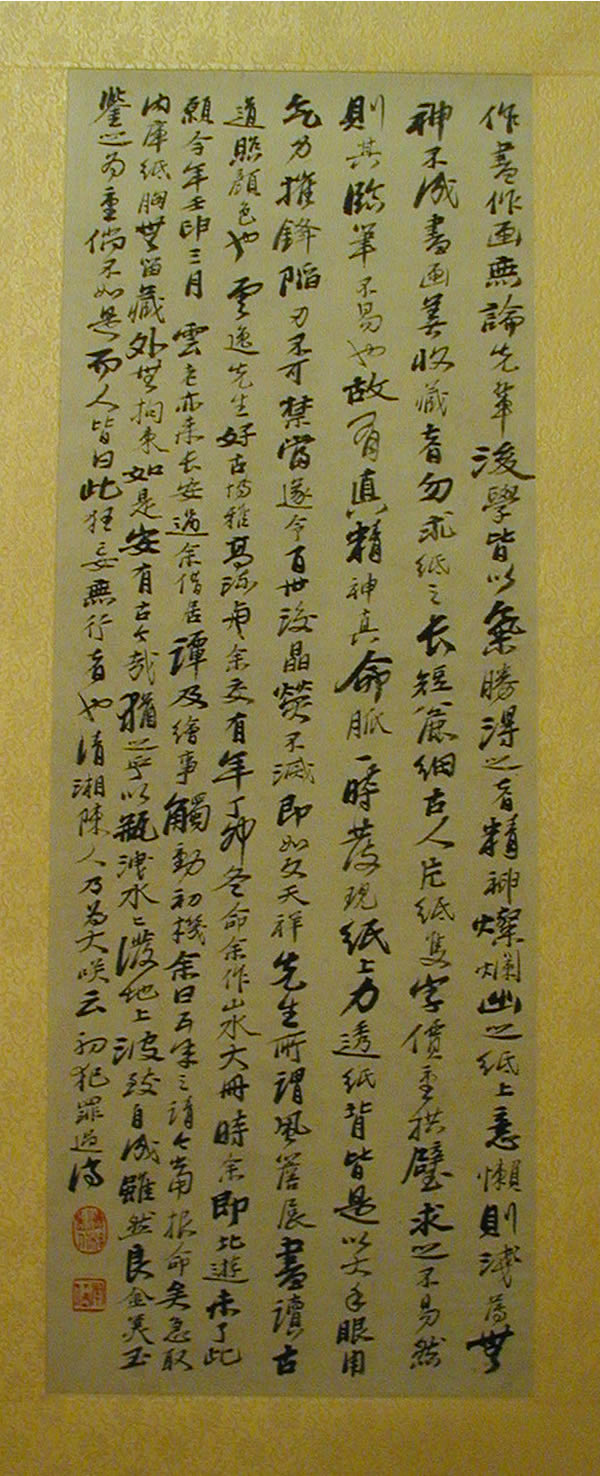 作書作画無論先軰後學皆以氣勝得之者精神燦爛出之紙上意懶則淺薄無
神不成書画善收藏者勿求紙之長短麄細古人片紙隻字價重拱璧求之不易然
則其臨筆不易也故有真精神真命脈一時發現紙上力透紙背皆是以大手眼用
气力摧鋒陷刃不可禁當遂令百世後晶熒不滅即如文天祥先生所謂風簷展書讀古
道照顏色也雲逸先生好古博雅高深與余交有年丁卯冬命余作山水大冊時余即北遊未了此
願今年壬申三月雲老亦来長安過余借居譚及繪事觸動初機余曰五年之請今當報命矣急取
內庫紙胸無留藏外無拘束如是安有古今哉猶之乎以瓶洩水水潑地上波致自成雖然良金美玉
鑒之為重倘不如是而人皆曰此狂妄無行者也清湘陳人乃為大咲云初犯罪過濤